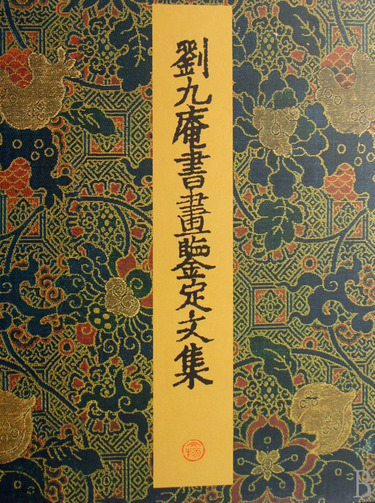 劉九庵書畫鑒定文集